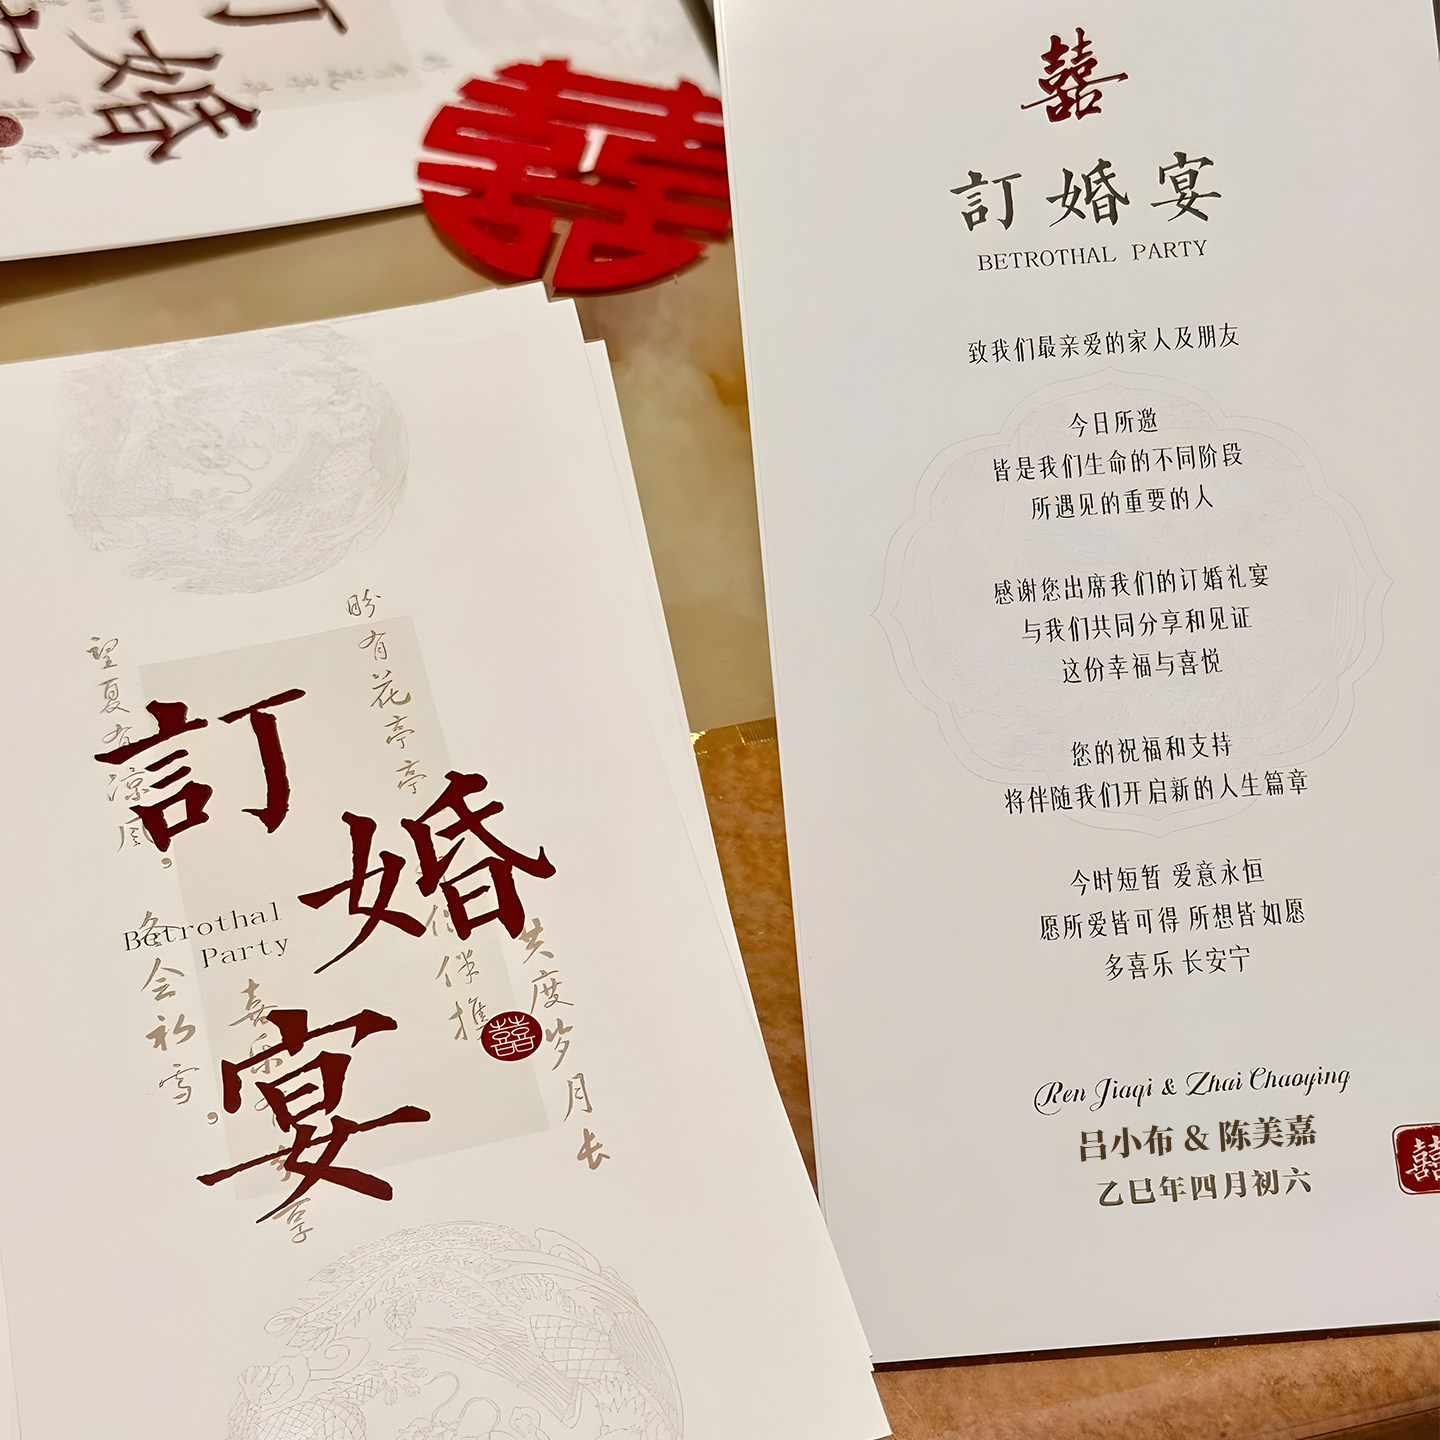 婚
囍
囍
訂婚宴
BETROTHAL PARTY
致我们最亲爱的家人及朋友
今日所邀
皆是我们生命的不同阶段
所遇见的重要的人
感谢您出席我们的订婚礼宴
与我们共同分享和见证
这份幸福与喜悦
您的祝福和支持
将伴随我们开启新的人生篇章
今时短暂 爱意永恒
愿所爱皆可得 所想皆如愿
多喜乐 长安宁
Ren Jiaqi & Zhai Chaoying
吕小布 & 陈美嘉
乙巳年四月初六
囍
盼有花亭亭
望夏有凉风,
訂婚宴
Betrothal
Party
冬会初雪,
伴携
共度岁月长
喜乐
享
囍